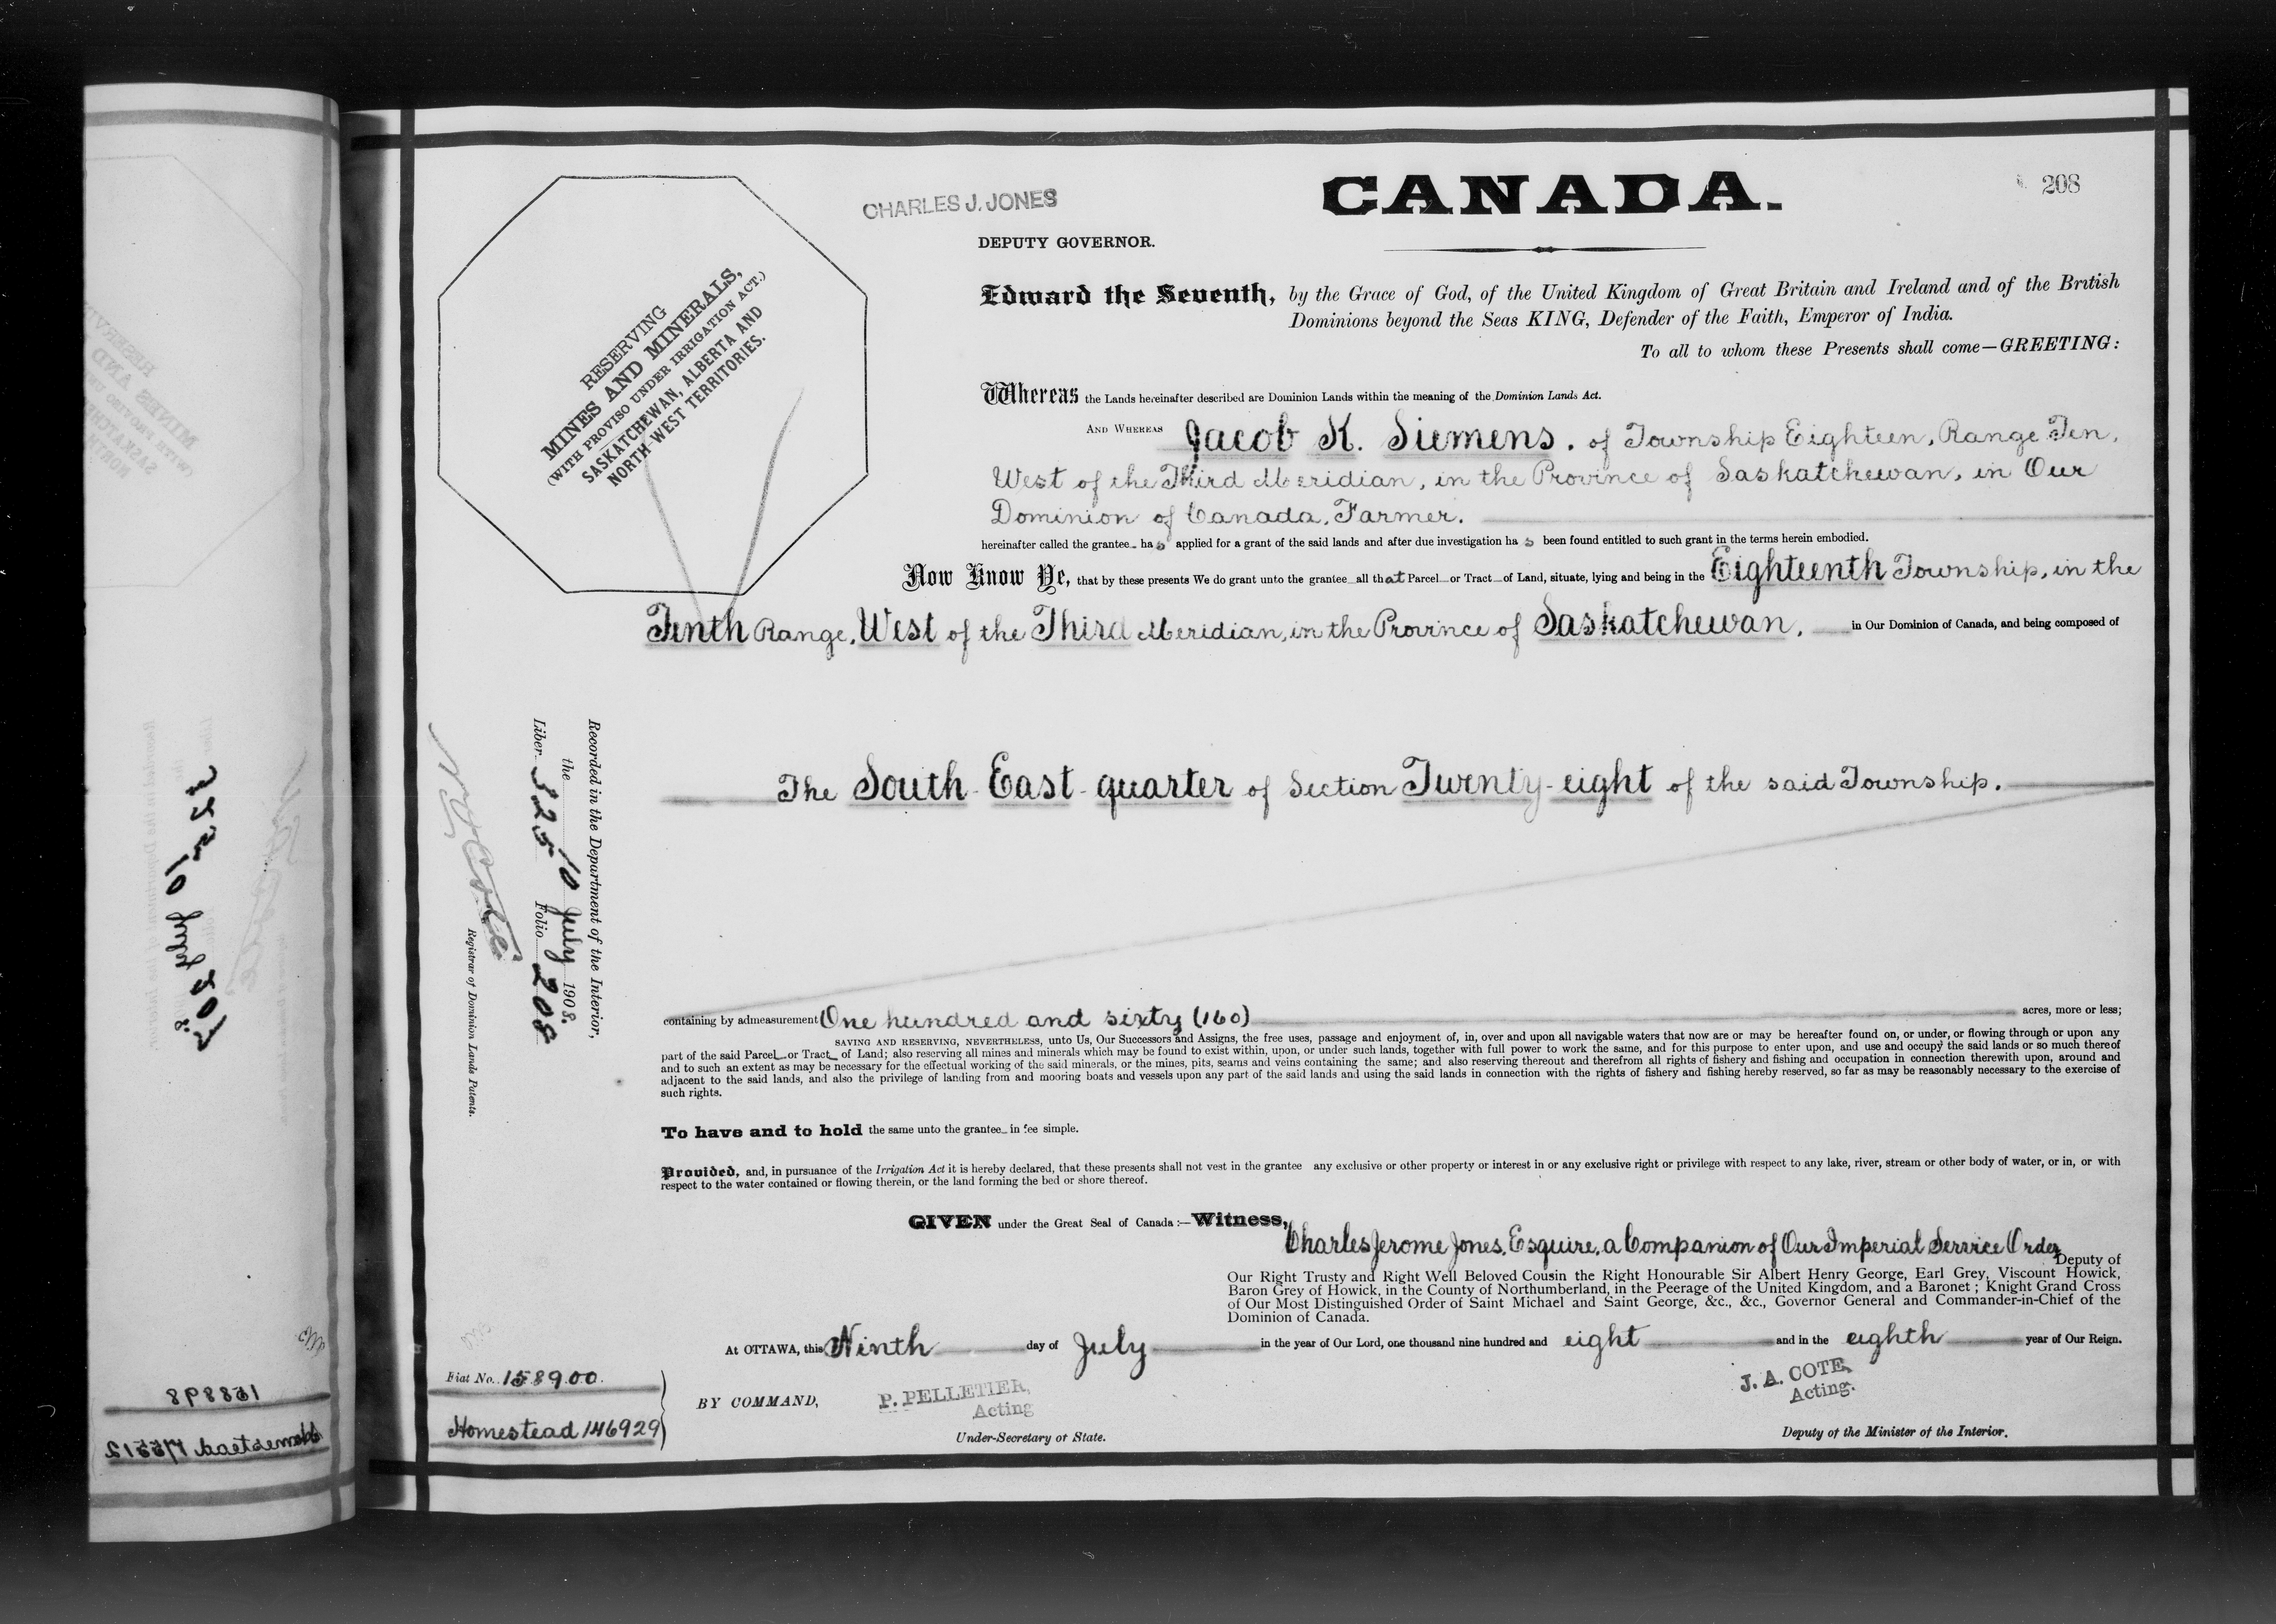 CHARLES J. JONES
CANADA.
208
DEPUTY GOVERNOR.
RESERVING
MINES AND MINERALS,
(WITH PROVISO UNDER IRRIGATION ACT.)
SASKATCHEWAN, ALBERTA AND
NORTH-WEST TERRITORIES.
Edward the Seventh, by the Grace of God, of the United Kingdom of Great Britain and Ireland and of the British
Dominions beyond the Seas KING, Defender of the Faith, Emperor of India.
To all to whom these Presents shall come—GREETING:
Whereas the Lands hereinafter described are Dominion Lands within the meaning of the Dominion Lands Act.
AND WHEREAS Jacob K. Siemens. of Township Eighteen, Range Ten,
West of the Third Meridian, in the Province of Saskatchewan, in Our
Dominion of Canada, Farmer.
hereinafter called the grantee has applied for a grant of the said lands and after due investigation has been found entitled to such grant in the terms herein embodied.
Now Know Ye, that by these presents We do grant unto the grantee all that Parcel or Tract of Land, situate, lying and being in the Eighteenth Township, in the
Tenth Range, West of the Third Meridian, in the Province of Saskatchewan, in Our Dominion of Canada, and being composed of
The South-East-quarter of Section Twenty-eight of the said Township.
containing by admeasurement One hundred and sixty (160) acres, more or less;
SAVING AND RESERVING, NEVERTHELESS, unto Us, Our Successors and Assigns, the free uses, passage and enjoyment of, in, over and upon all navigable waters that now are or may be hereafter found on, or under, or flowing through or upon any
part of the said Parcel or Tract of Land; also reserving all mines and minerals which may be found to exist within, upon, or under such lands, together with full power to work the same, and for this purpose to enter upon, and use and occupy the said lands or so much thereof
and to such an extent as may be necessary for the effectual working of the said minerals, or the mines, pits, seams and veins containing the same; and also reserving thereout and therefrom all rights of fishery and fishing and occupation in connection therewith upon, around and
adjacent to the said lands, and also the privilege of landing from and mooring boats and vessels upon any part of the said lands and using the said lands in connection with the rights of fishery and fishing hereby reserved, so far as may be reasonably necessary to the exercise of
such rights.
To have and to hold the same unto the grantee in fee simple.
Provided, and, in pursuance of the Irrigation Act it is hereby declared, that these presents shall not vest in the grantee any exclusive or other property or interest in or any exclusive right or privilege with respect to any lake, river, stream or other body of water, or in, or with
respect to the water contained or flowing therein, or the land forming the bed or shore thereof.
GIVEN under the Great Seal of Canada:—Witness,
Charles Jerome Jones, Esquire, a Companion of Our Imperial Service Order
Deputy of
Our Right Trusty and Right Well Beloved Cousin the Right Honourable Sir Albert Henry George, Earl Grey, Viscount Howick,
Baron Grey of Howick, in the County of Northumberland, in the Peerage of the United Kingdom, and a Baronet; Knight Grand Cross
of Our Most Distinguished Order of Saint Michael and Saint George, &c., &c., Governor General and Commander-in-Chief of the
Dominion of Canada.
At OTTAWA, this Ninth day of July in the year of Our Lord, one thousand nine hundred and eight and in the eighth year of Our Reign.
BY COMMAND,
P. PELLETIER,
Acting
Under-Secretary of State.
J. A. COTE,
Acting.
Deputy of the Minister of the Interior.
Fiat No. 158900.
Homestead 146929
Recorded in the Department of the Interior,
the 10 July 1908.
Liber 325 Folio 208
Registrar of Dominion Lands Patents.
158898
Homestead 175512